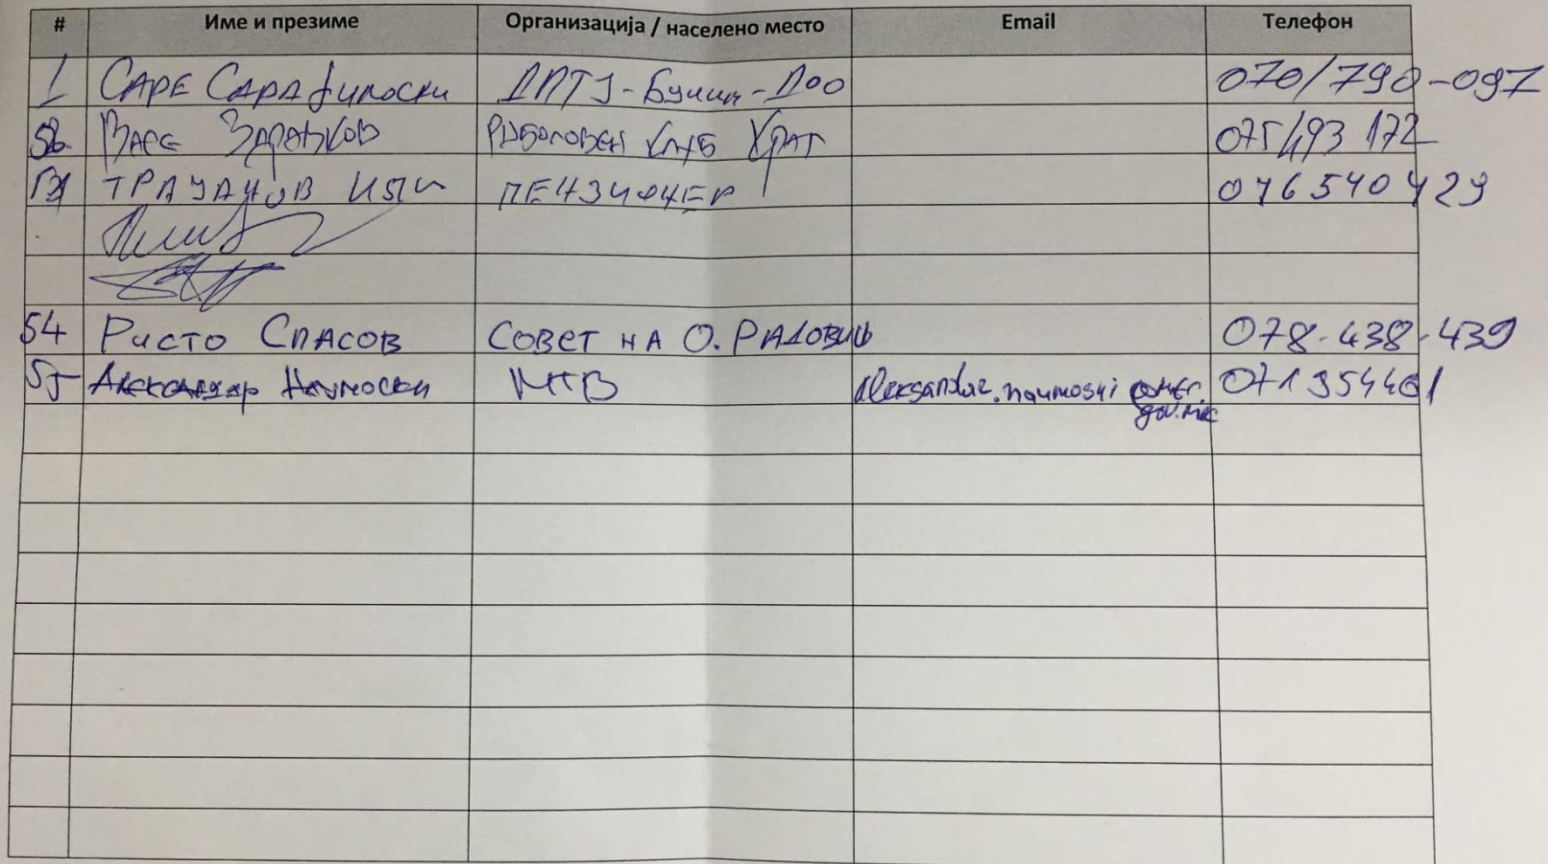 # Име и презиме Организација / населено место Email Телефон
1 САРЕ САРАфилоски ДПТУ-Бучим-ДОО 070/790-097
ВАСЕ РИБОЛОВЕН КЛУБ 075/493 172
ТРАЈАНОВ ПЕНЗИОНЕР 076 540 429
54 Ристо Спасов СОВЕТ НА О. РАДОВИШ 078-438-439
55 Александар Наумоски МТВ aleksandar.naumoski 071 354401
gov.mk